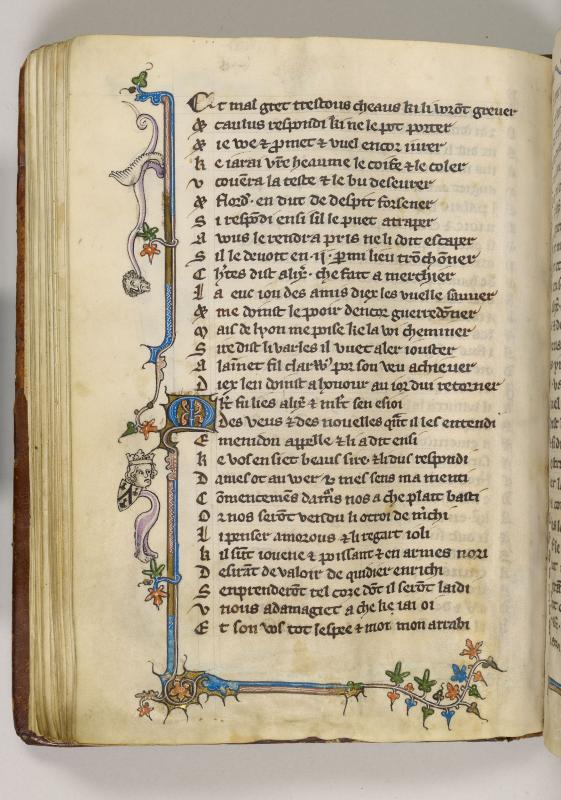 Et mal gret trestous cheaus ki li wrōt grever
& caulus respondi ki ne le pot porter
& ie we & pmet & vuel encor iurer
K e iarai vr̄e heaume le coife & le coler
V couera la teste & le bu deseurer
& flord· en dut de despit forsener
S i respōdi ensi sil le puet atraper
A wus le rendra pris ne li doit escaper
S il le devoit en ·ij· pmi lieu trōchōner
C h'tes dist alix̄· che fait a merchier
L a euc iou des amis diex les vuelle sauver
& me doinst le pooir dencor guerredōner
M ais de lyon me poise ke la wi cheminer
S ire dist li varles il vuet aler iouster
A laīnet fil clarw' por son veu achiever
D iex len doinst a honour au ior dui retorner
fu lies alix̄ & mlt sen esioi
D es veus & des nouelles qāt il les entendi
E menidon appelle & li a dit ensi
K e vos en siet beaus sire· & li dus respondi
D ames ot au wer & mes sens ma menti
C ōmencemēs damrs nos a che plait basti
O r nos serōt vendu li otroi de mchi
L i penser amorous & li regart ioli
K il sūt iouene & poissant & en armes nori
D esirāt de valoir de quidier enrichi
S enprenderōt tel cose dōt il serōt laidi
V nous adamagiet a che ke iai oi
E t son vos tot lespee & moi mon arrabi